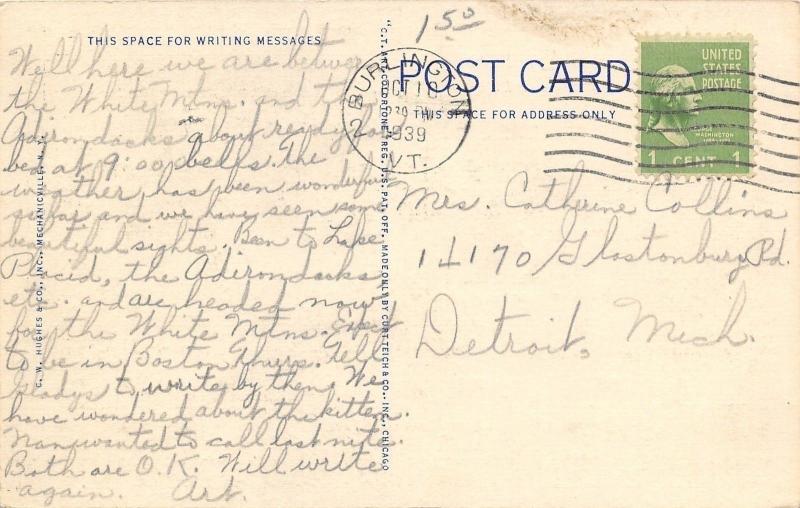 THIS SPACE FOR WRITING MESSAGES
Well here we are between
the White Mtns. and the
Adirondacks about ready for
bed at 9:00 bells. The
weather has been wonderful
so far and we have seen some
beautiful sights. Been to Lake
Placid, the Adirondacks,
etc. and are headed now
for the White Mtns. Expect
to be in Boston Thurs. Tell
Gladys to write by then. We
have wondered about the kitten.
Nan wanted to call last nite.
Both are O.K. Will write
again. Art.
C. W. HUGHES & CO., INC., MECHANICVILLE, N. Y.
"C.T. ART-COLORTONE" REG. U.S. PAT. OFF. MADE ONLY BY CURT TEICH & CO., INC., CHICAGO
150
POST CARD
THIS SPACE FOR ADDRESS ONLY
BURLINGTON
OCT 10
1939
2
VT.
UNITED
STATES
POSTAGE
WASHINGTON
1 CENT 1
Mrs. Catherine Collins
14170 Glastonbury Rd.
Detroit, Mich.